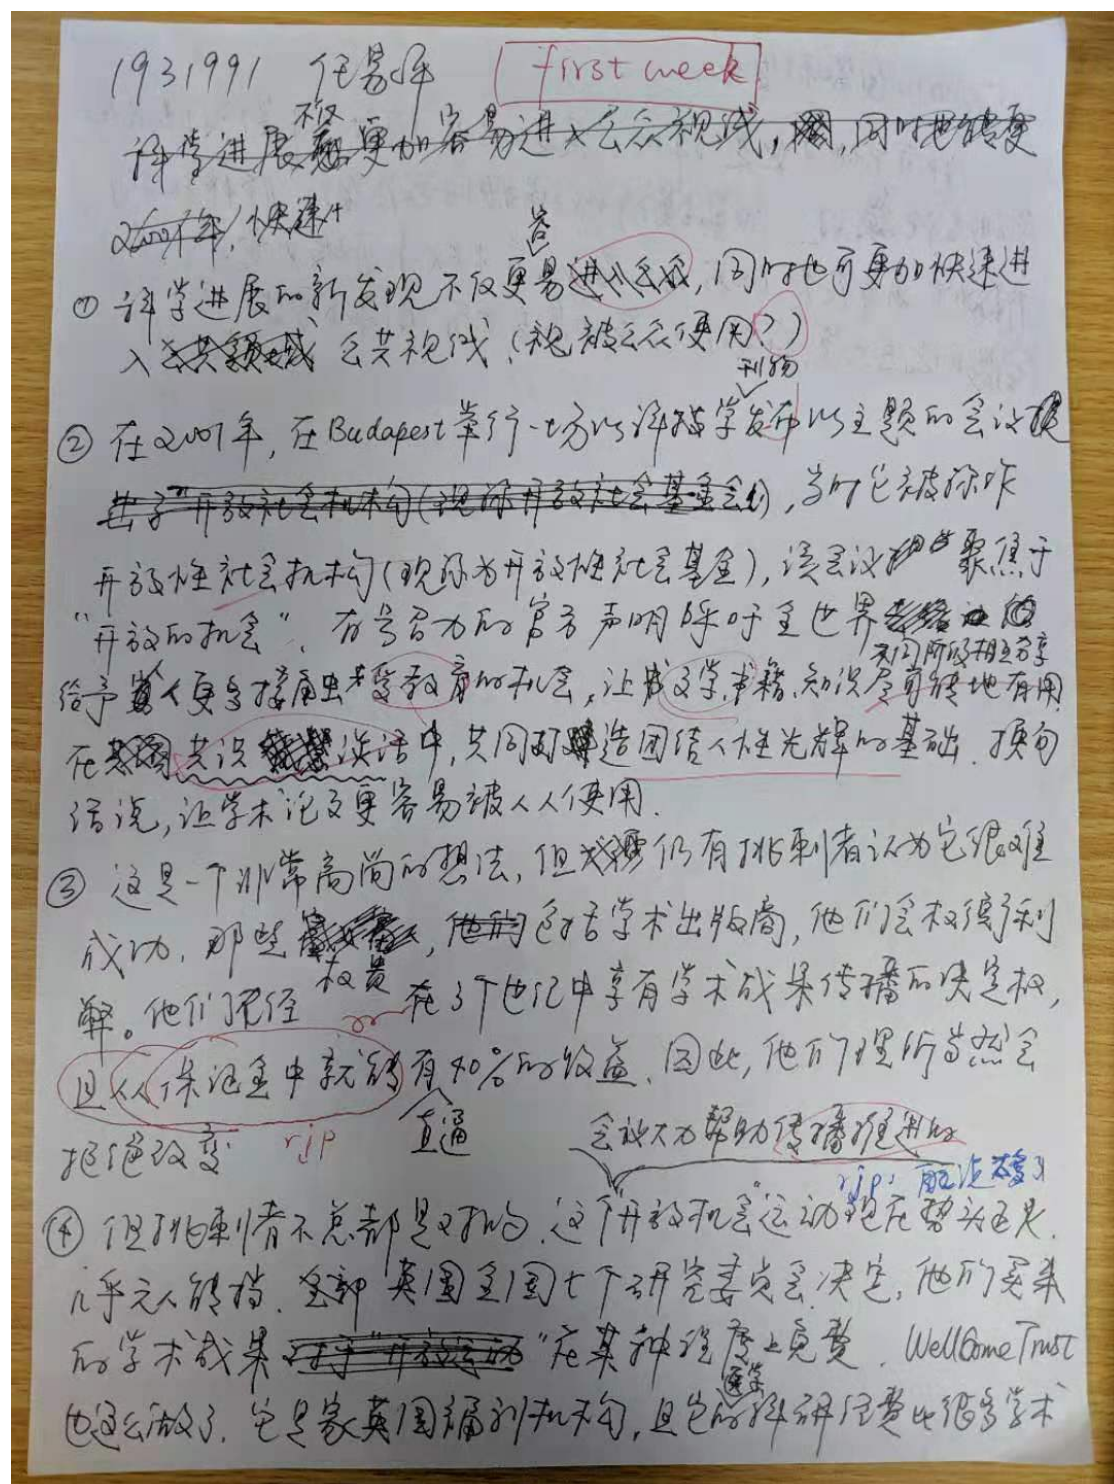 1931991 任易 first week
科学进展 更加容易进入公众视线, 同时也能更
快速
容
① 科学进展的新发现不仅更易进入公众, 同时也可更加快速进
入 公共领域 公共视线, (被公众使用?)
刊物
② 在2001年, 在Budapest举行一场以科学发布以主题的会议 提
出了"开放社会机构(现称开放社会基金会), 当时它被称作
开放性社会机构(现称为开放性社会基金), 该会议 聚焦于
"开放的机会". 有号召力的官方声明呼吁全世界
不同阶级相互分享
给予 人更多接触 受教育的机会, 让 文学, 书籍, 知识尽可能地有用
在 共识 谈话中, 共同 造团结人性光辉的基础. 换句
话说, 让学术论文更容易被人人使用.
③ 这是一个非常高尚的想法, 但 仍有挑刺者认为它很难
成功. 那些 , 他们 包括学术出版商, 他们会权衡利
权贵
弊。他们 在3个世纪中享有学术成果传播的决定权,
且从保证金中就能有40%的收益. 因此, 他们理所当然会
直逼
拒绝改变 rjp
会被大力帮助传播推进的
rjp:
④ 但挑刺者不总都是对的. 这个"开放机会"运动现在势头正足.
几乎无人能挡. 全部 英国全国七个研究委员会决定, 他们买来
的学术成果 "在某种程度上免费. Wellcome Trust
医学
也这么做了. 它是家英国福利机构, 且它的科研经费比很多学术